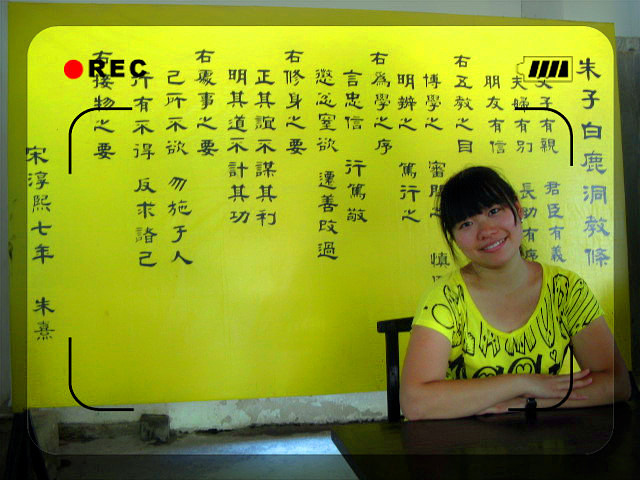 REC
朱子白鹿洞教條
父子有親 君臣有義
夫婦有別 長幼有序
朋友有信
右五教之目
博學之 審問之 慎
明辨之 篤行之
右為學之序
言忠信 行篤敬
懲忿窒欲 遷善改過
右修身之要
正其誼不謀其利
明其道不計其功
右處事之要
己所不欲 勿施于人
行有不得 反求諸己
右接物之要
宋淳熙七年 朱熹